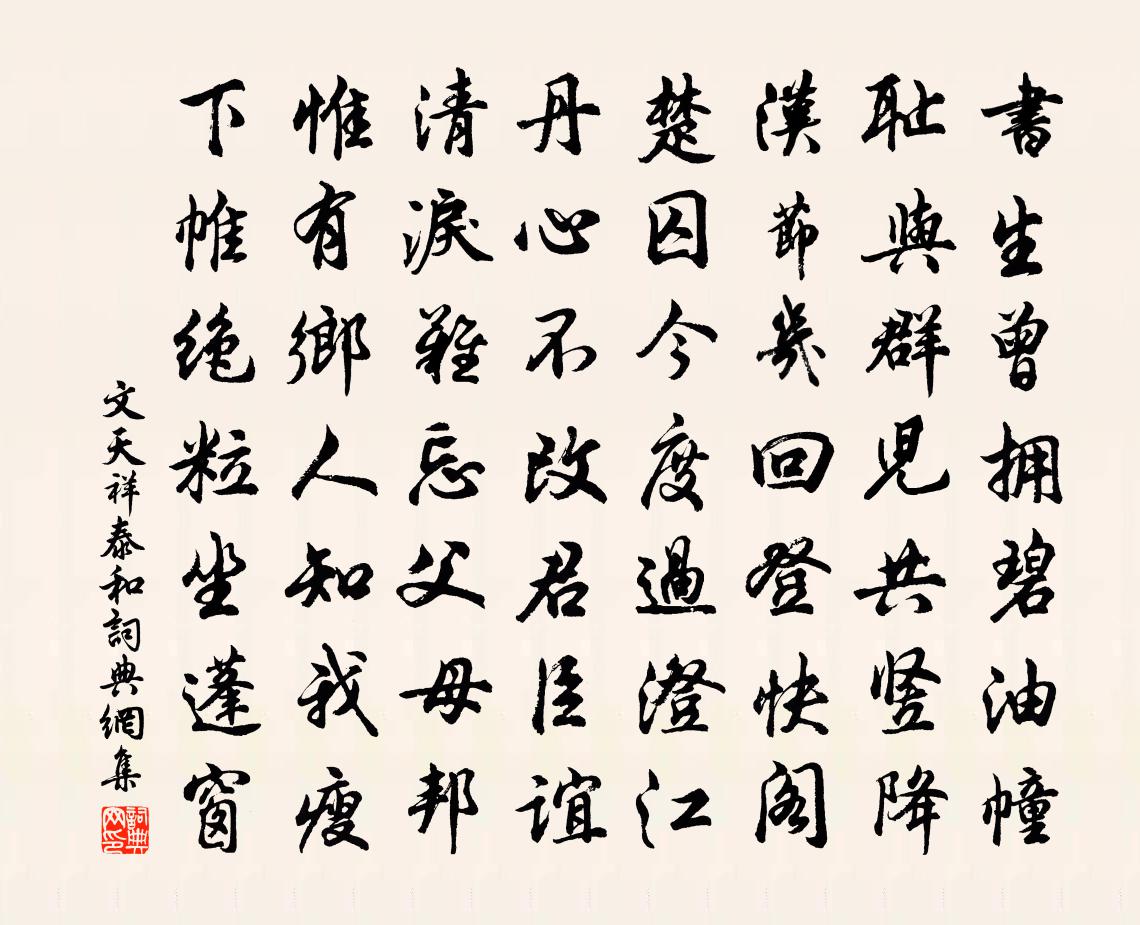 書生曾拥碧油幢
耻與群児共竖降
漢節幾回登快阁
楚囚今度過澄江
丹心不改君臣誼
清淚難忘父母邦
惟有鄉人知我瘦
下帷绝粒坐蓬窗
文天祥泰和詞典網集
詞典網印